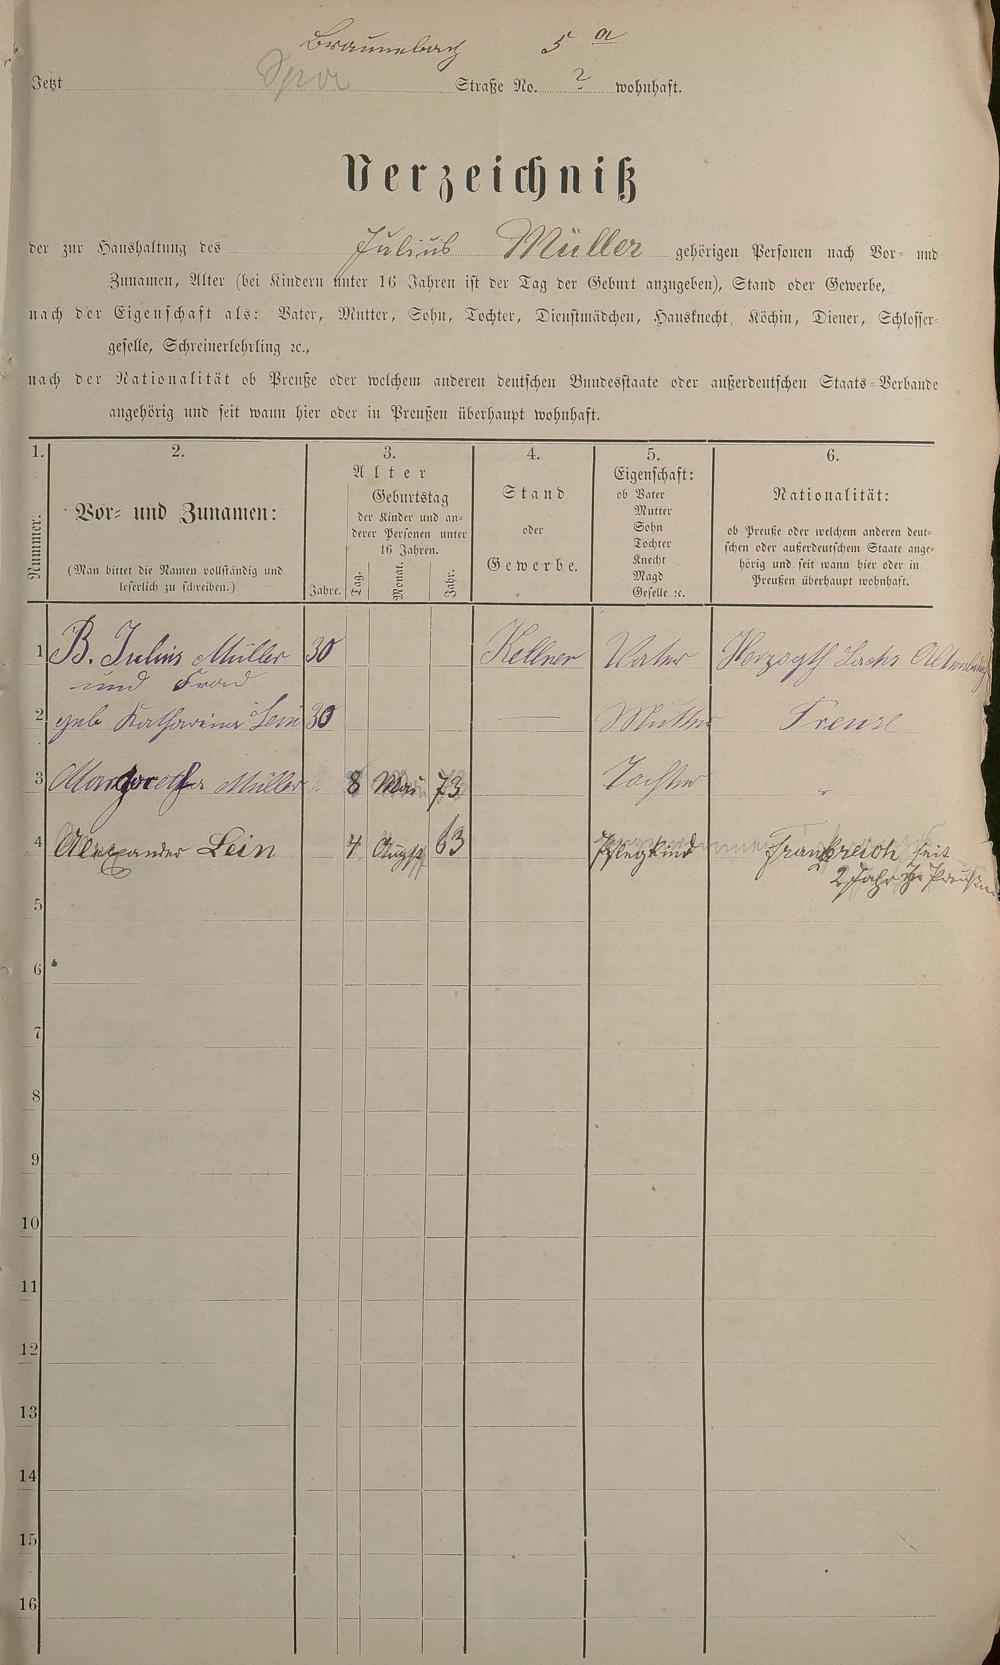 Braunebach 5 a
Jetzt Spor Straße No. ? wohnhaft.
Verzeichniß
der zur Haushaltung des Julius Müller gehörigen Personen nach Vor- und
Zunamen, Alter (bei Kindern unter 16 Jahren ist der Tag der Geburt anzugeben), Stand oder Gewerbe,
nach der Eigenschaft als: Vater, Mutter, Sohn, Tochter, Dienstmädchen, Hausknecht, Köchin, Diener, Schlosser-
geselle, Schreinerlehrling ꝛc.,
nach der Nationalität ob Preuße oder welchem anderen deutschen Bundesstaate oder außerdeutschen Staats-Verbande
angehörig und seit wann hier oder in Preußen überhaupt wohnhaft.
1. 2. 3. 4. 5. 6.
Nummer.
Vor- und Zunamen:
(Man bittet die Namen vollständig und
leserlich zu schreiben.)
Alter
Geburtstag
der Kinder und an-
derer Personen unter
16 Jahren.
Jahre. Tag. Monat. Jahr.
Stand
oder
Gewerbe.
Eigenschaft:
ob Vater
Mutter
Sohn
Tochter
Knecht
Magd
Geselle ꝛc.
Nationalität:
ob Preuße oder welchem anderen deut-
schen oder außerdeutschem Staate ange-
hörig und seit wann hier oder in
Preußen überhaupt wohnhaft.
1 B. Julius Müller 30 Kellner Vater Herzogth Sachs Altenburg
und Frau
2 geb Katharina Lein 30 Mutter Preuse
3 Margarethe Müller 8 Mai 73 Tochter "
4 Alexander Lein 4 August 63 Pflegkind Frankreich seit
2 Jahr in Preußen
5
6
7
8
9
10
11
12
13
14
15
16